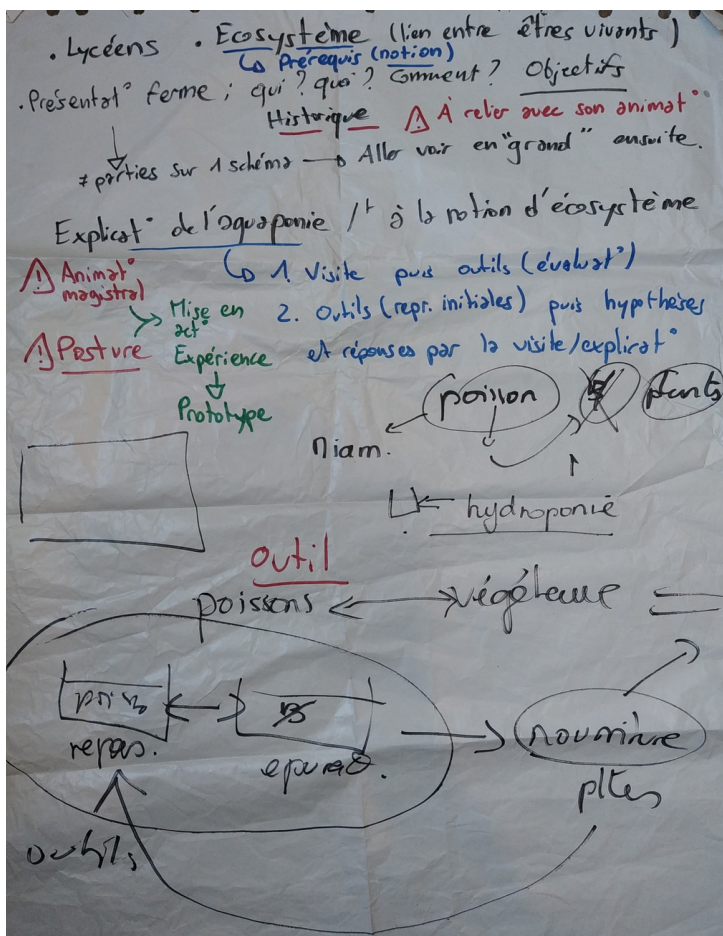 . Lycéens . Ecosystème (lien entre êtres vivants)
↳ Prérequis (notion)
. Présentat° ferme ; qui ? quoi ? Comment ? Objectifs
Historique ⚠ À relier avec son animat°
≠ parties sur 1 schéma → Aller voir en "grand" ensuite.
Explicat° de l'aquaponie /t à la notion d'écosystème
↳ 1. Visite puis outils (évaluat°)
⚠ Animat° magistral
2. Outils (repr. initiales) puis hypothèses
et réponses par la visite/explicat°
⚠ Posture
Mise en
act°
Expérience
Prototype
poisson plants
miam.
hydroponie
Outil
poissons ↔ végétaux =
repas.
nourriture
pltes
outils